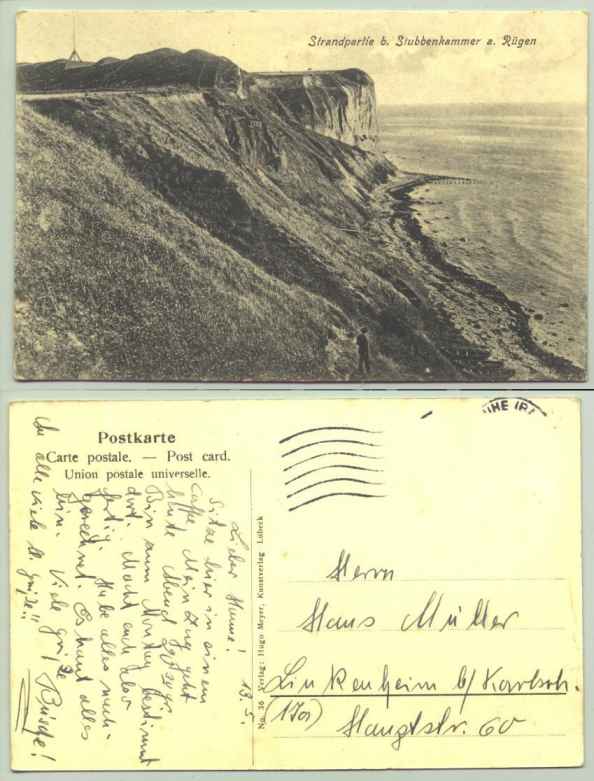 Strandpartie b. Stubbenkammer a. Rügen
Postkarte
Carte postale. — Post card.
Union postale universelle.
No. 36 Verlag: Hugo Meyer, Kunstverlag Lübeck
13. 5.
Lieber Hanne!
Sitze hier in einem
Caffe. Mein Zug geht
heute Abend
Bin zum Montag bestimmt
dort. Macht euch also
fertig. Habe alles nach-
gerechnet. Es haut alles
hin. Viele Grüße
Büsche!
An alle viele Grüße!!
Herrn
Hans Müller
Linkenheim b/Karlsr.
(17a) Hauptstr. 60